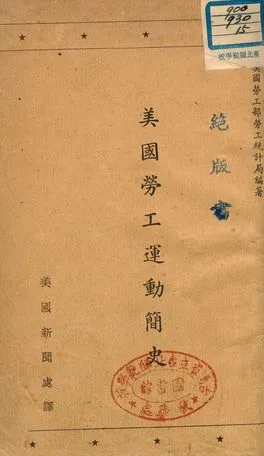 900
930
15
臺北師範學校
美國勞工部勞工統計局編著
絕版書
美國勞工運動簡史
美國新聞處譯
圖書館